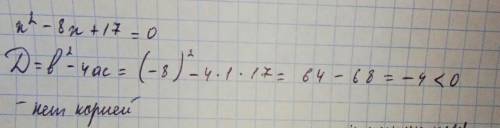 x² - 8x + 17 = 0
D = b² - 4ac = (-8)² - 4·1·17 = 64 - 68 = -4 < 0
- нет корней